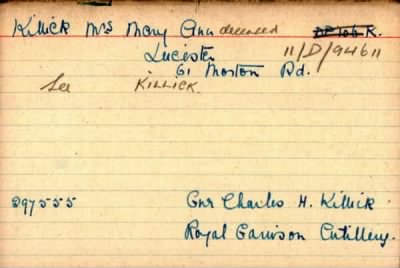 Killick Mrs Mary Ann deceased
Leicester 11/D/94611
61 Morton Rd.
See KILLICK.
297555 Gnr Charles H. Killick
Royal Garrison Artillery.